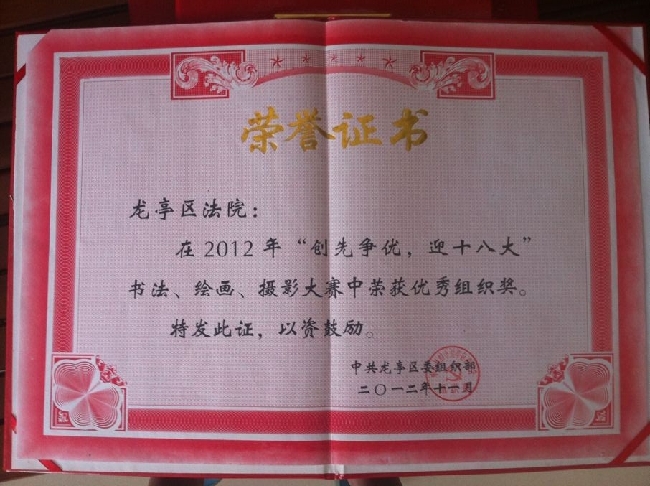 荣誉证书
龙亭区法院：
在2012年“创先争优，迎十八大”
书法、绘画、摄影大赛中荣获优秀组织奖。
特发此证，以资鼓励。
中共龙亭区委组织部
二〇一二年十一月